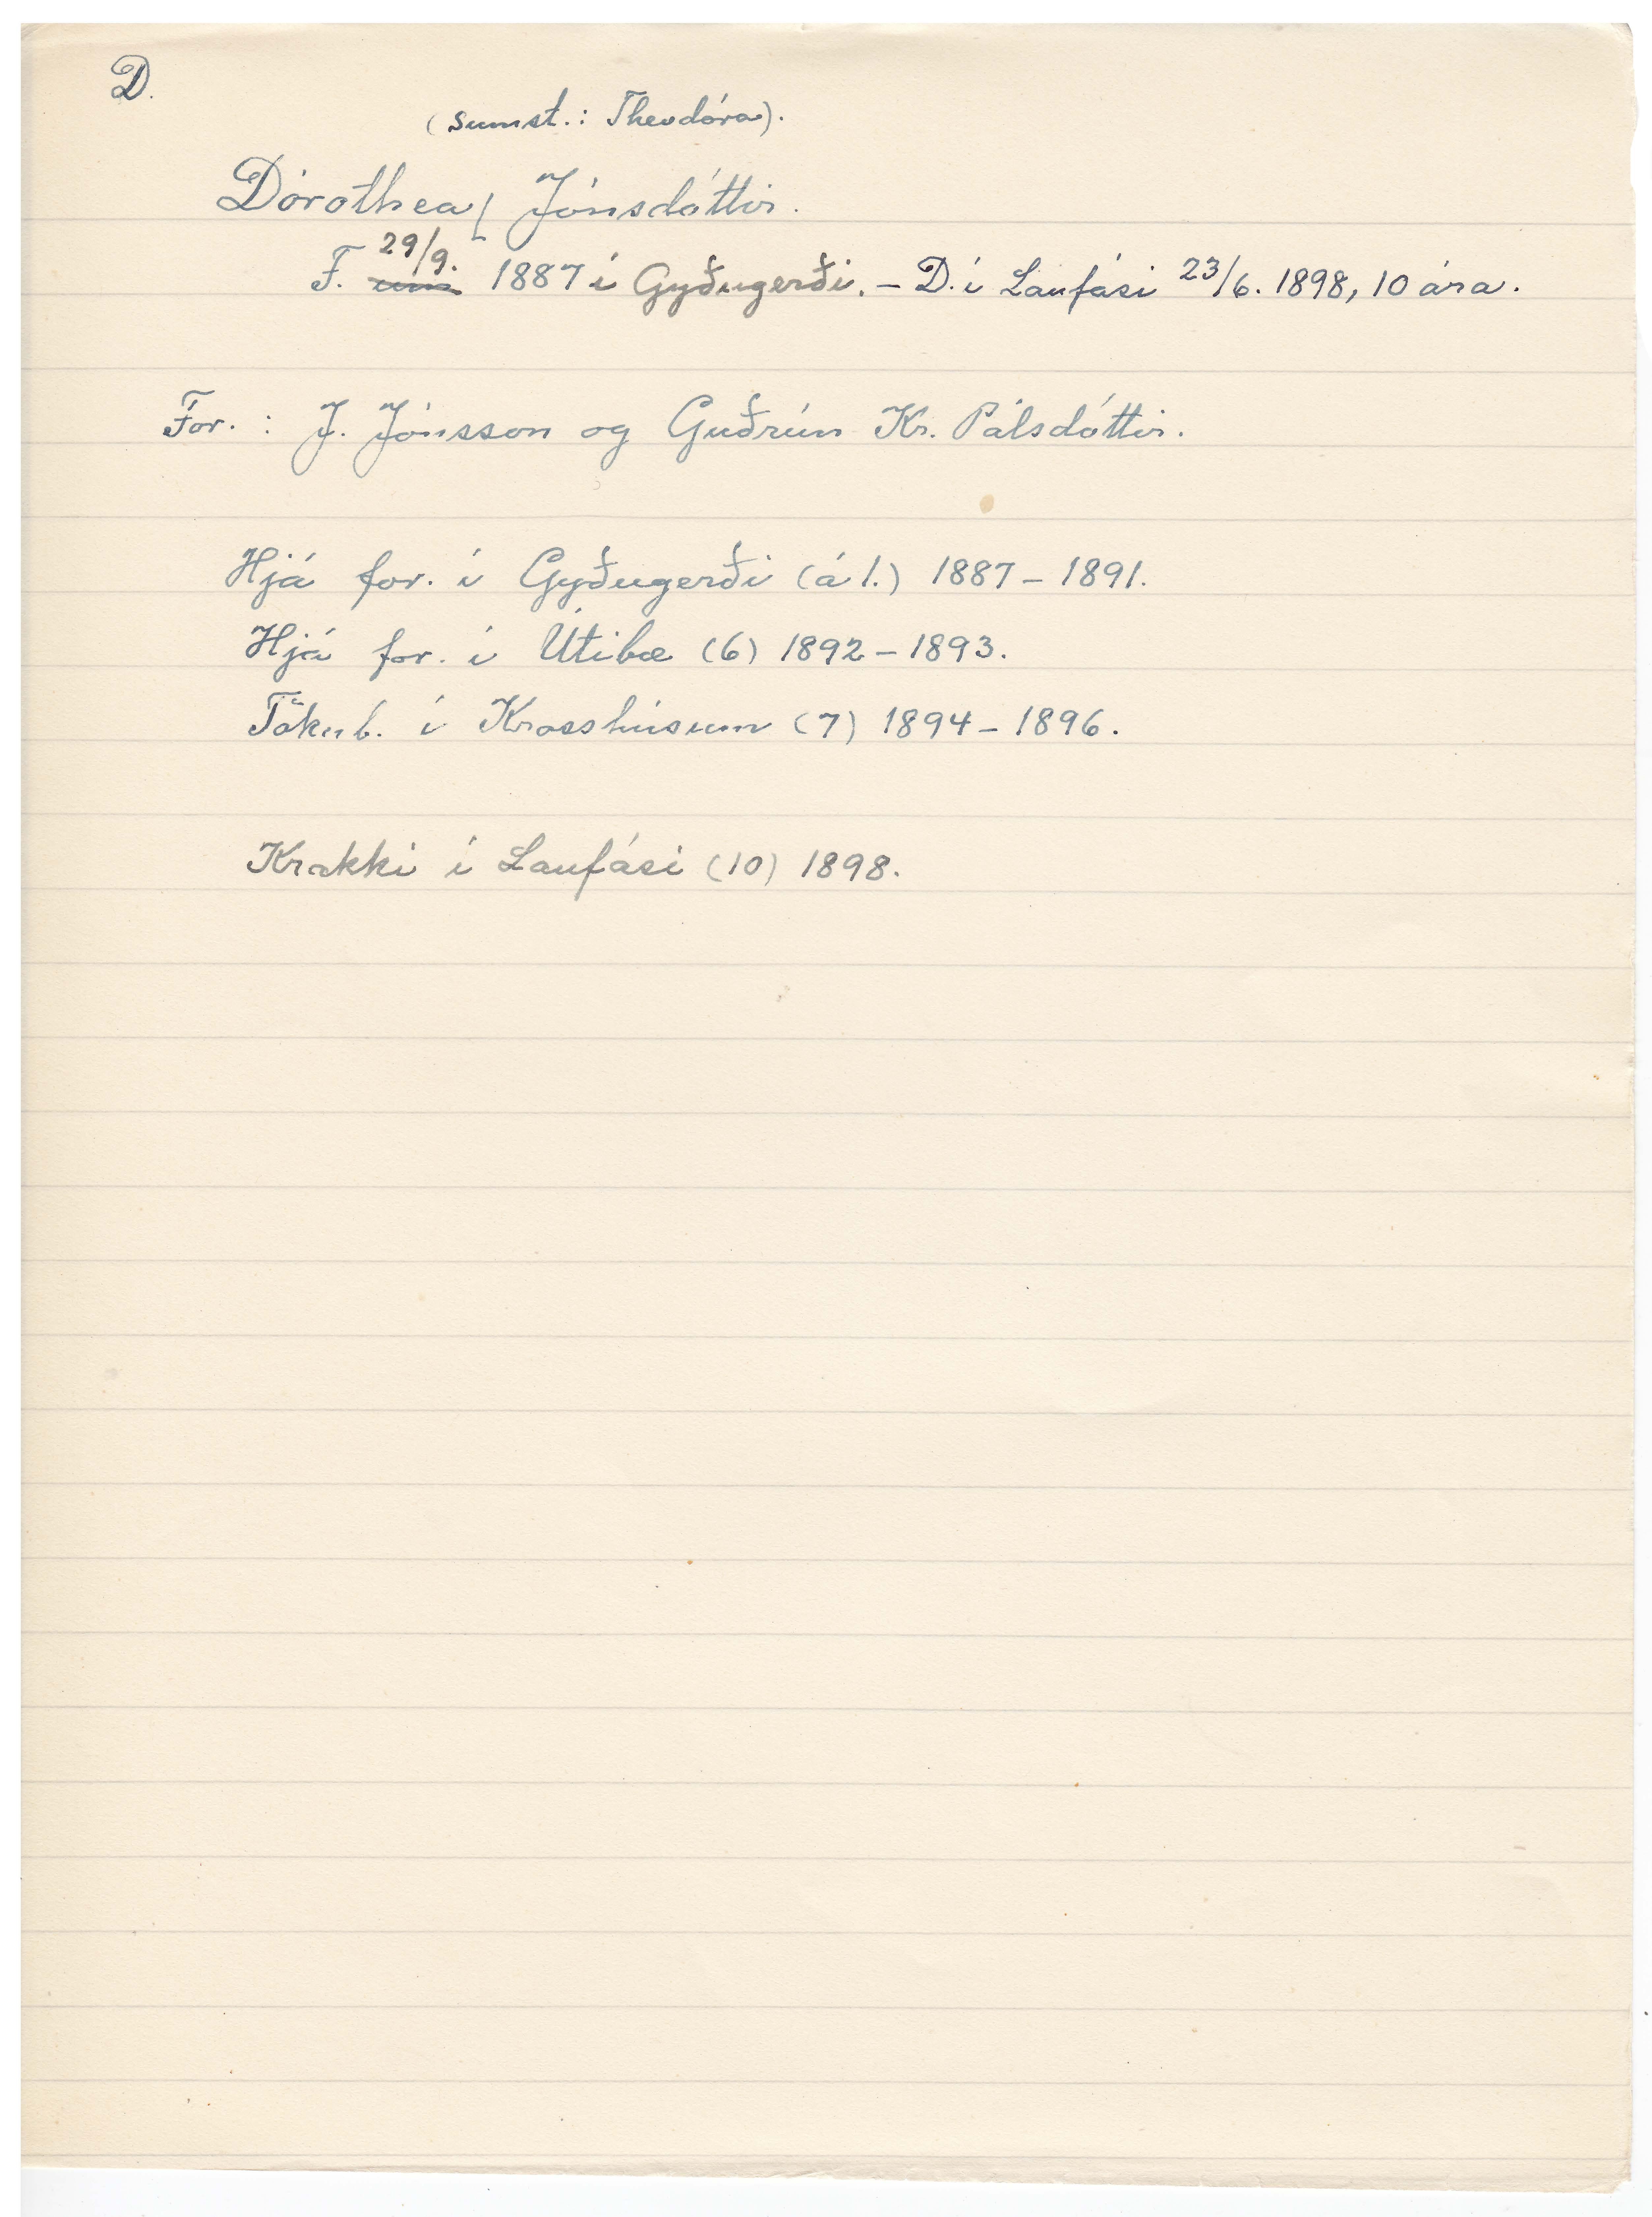 D.
(sumst.: Theodóra).
Dórothea Jónsdóttir.
29/9.
F. um 1887 í Gyðugerði. – D. í Laufási 23/6. 1898, 10 ára.
For. : J. Jónsson og Guðrún Kr. Pálsdóttir.
Hjá for. í Gyðugerði (á 1.) 1887 – 1891.
Hjá for. í Útibæ (6) 1892 – 1893.
Tökub. í Krosshúsum (7) 1894 – 1896.
Krakki í Laufási (10) 1898.